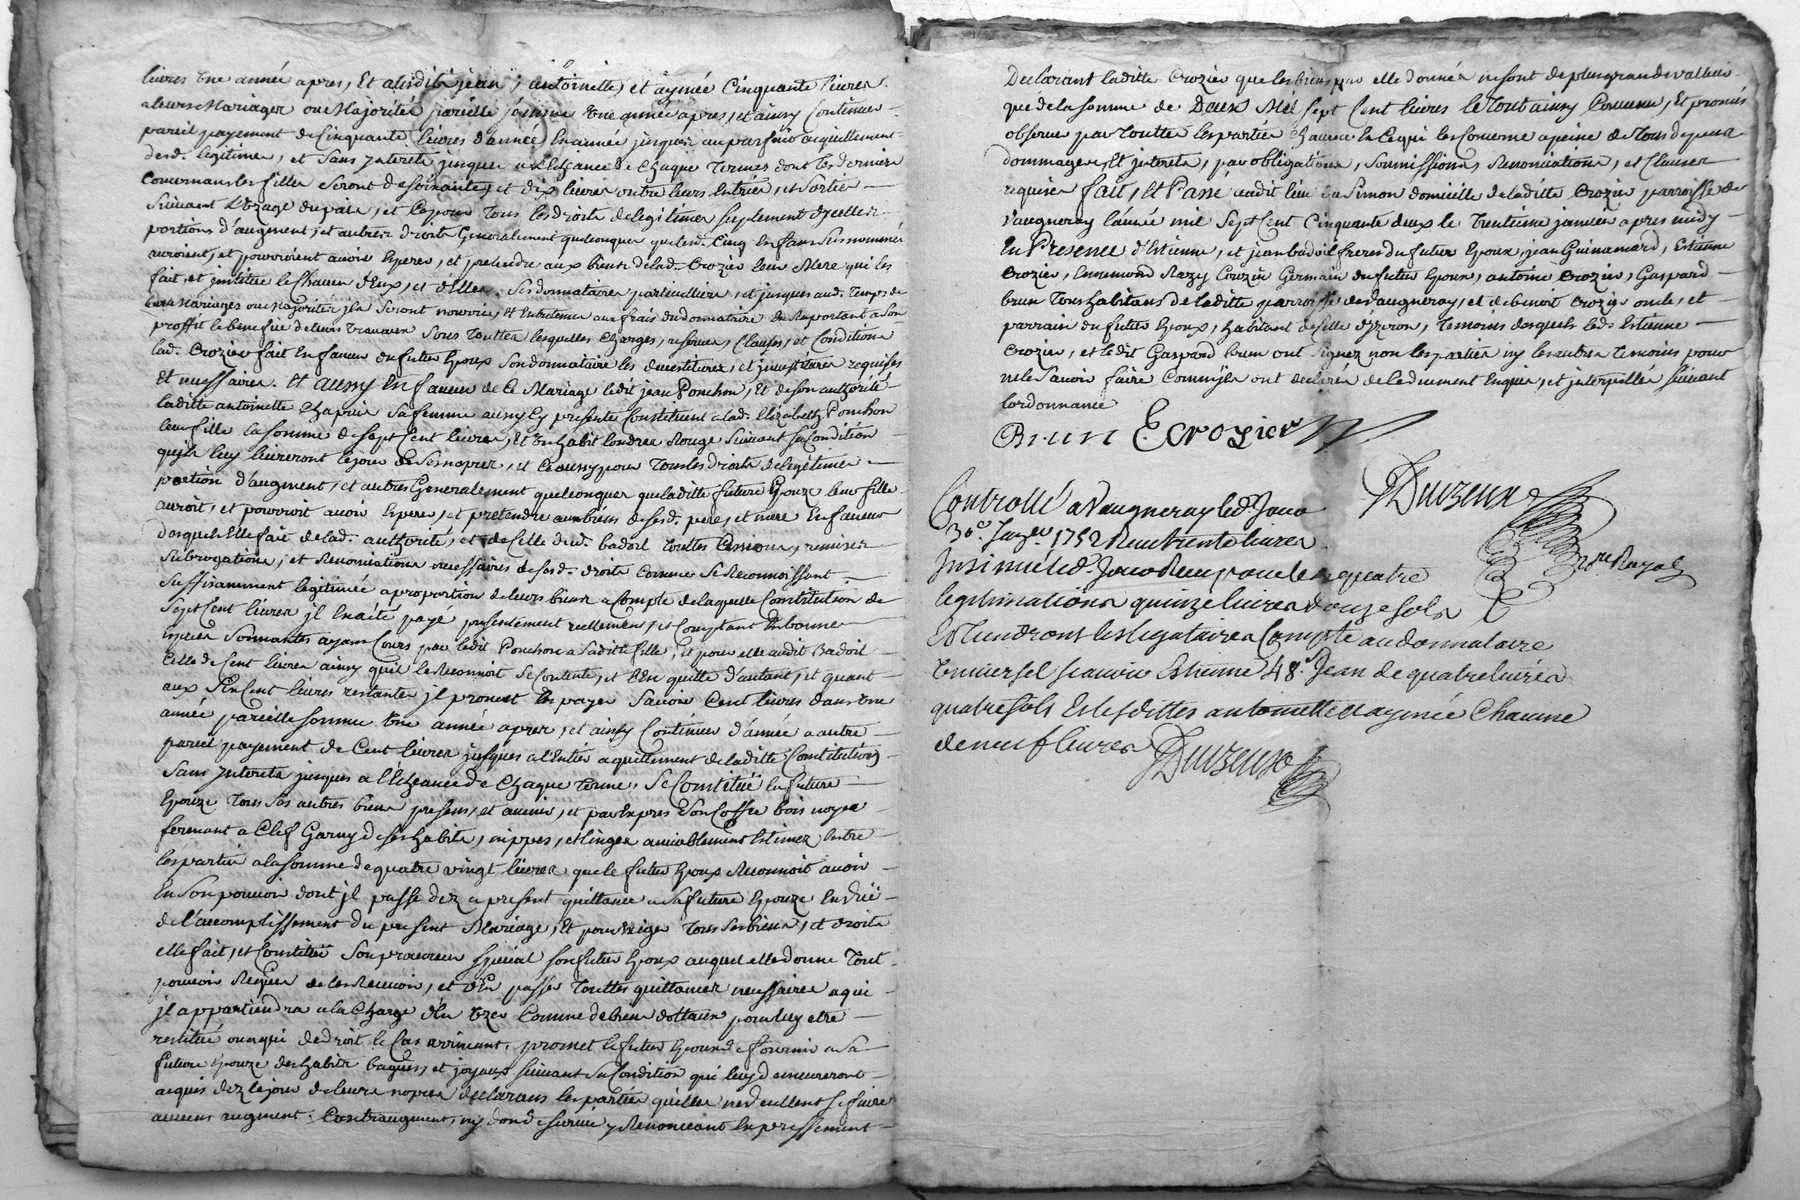 livres une année apres, Et ausdits jean, antoinette, et aymée Cinquante livres
a leurs Mariages ou Majorités pareille somme une année apres, et ainsy Continuer
pareil payement de Cinquante livres d'année En année jusques au parfait aquittement
desd. legitimes, et Sans jnterets jusques a l'Echéance de Chaque Termes dont les derniers
Concernans les filles Seront de soixante, et dix livres outre leurs Entrées, et Sorties
Suivant L'Uzage du païs, et Ce pour Tous les droits de legitimes suplement d'jcelles
portions d'augment, et autres droits Generalement quelconques que lesd. Cinq Enfans Surnommés
auroient, et pourroient avoir Esperer, et pretendre aux biens de lad. Crozier leur Mere qui les
fait, et jnstitüe les Chacun d'Eux, et d'Elles Ses donnataires particulliers, et jusques aud. Temps de
leurs Mariages ou Majorités jls Seront nourris, Et Entretenus aux frais du donnataire En Raportant a Son
proffit le benefice de leurs travaux Sous Touttes lesquelles Charges, reserves, Clauses, et Conditions
lad. Crozier fait En faveur du futur Epoux Son donnataire les devestitures, et jnvestitures requises
Et necessaires. Et aussy En faveur de Ce Mariage ledit jean Ponchon, Et de son authorité
laditte antoinette Chapuis Sa femme aussy Cy presente Constituent a lad. Elizabeth Ponchon
leur fille la somme de sept Cent livres, Et Un habit londres Rouge Suivant Sa Condition
qu'jls luy livreront le jour de Ses nopces, et Ce aussy pour Tous les droits de legitimes
portion d'augment, et autres Generalement quelconques que laditte future Epouze leur fille
auroit, et pourroit avoir Esperer, et pretendre aux biens de sesd. pere, et mere En faveur
desquels Elle fait de lad. authorité, et de Celle dud. badoil Touttes Cessions, remises
Subrogations, et Renonciations necessaires de sesd. droits Comme Se Reconnoissant
Suffisamment legitimée a proportion de leurs biens a Compte de laquelle Constitution de
Sept Cent livres jl En a été payé presentement réellement, et Comptant En bonnes
Especes Sonnantes ayant Cours par ledit Ponchon a Saditte fille, et pour elle audit Badoil
Celle de Cent livres ainsy qu'il le Reconnoit Se Contente, et l'En quitte d'autant, et quant
aux Six Cent livres restantes jl promet En payer Sçavoir Cent livres dans une
année pareille somme Une année apres, et ainsy Continuer d'année a autre
pareil payement de Cent livres jusques a l'Entier aquittement de laditte Constitution
Sans jnterets jusques a l'Echeance de Chaque terme. Se Constitüe la future
Epouze Tous Ses autres biens presens, et avenir, et par Expres Son Coffre bois noyer
fermant a Clef Garny de ses habits, nippes, et linges amiablement Estimez Entre
les parties a la somme de quatre vingt livres que le futur Epoux Reconnoit avoir
En Son pouvoir dont jl passe dez a present quittance a Sa future Epouze En Vüe
de l'accomplissement du present Mariage, Et pour Exiger Tous Ses biens, et droits
elle fait, et Constitüe Son procureur special son futur Epoux auquel elle donne Tout
pouvoir Requis de les Recevoir, et d'En passer Touttes quittances necessaires a qui
jl appartiendra a la Charge d'En Uzer Comme de biens dottaux pour luy etre
restitüés ou a qui de droit le Cas arrivant, promet le futur Epoux de fournir a Sa
future Epouze des habits bagues, et joyaux Suivant Sa Condition qui luy demeureront
acquis dez le jour de leurs nopces declarans les parties qu'elles ne Veullent Se faire
aucuns augment, Contraugment, ny dons de survie y Renonceant Expressement
Declarant laditte Crozier que les biens par elle donnés ne sont de plus grande valleur
que de la somme de Deux Mil sept Cent livres le Tout ainsy Convenu, Et promis
observer par Touttes les parties Chacune En Ce qui les Concerne a peine de Tous depens
dommages, Et jnterets, par obligations, soumissions, Renonciations, et Clauses
requises fait, Et Passé audit lieu du Simon domicille de laditte Crozier parroisse de
Vaugneray l'année mil Sept Cent Cinquante deux le Trentieme janvier apres midy
En Presence d'Estienne, et jean badoil freres du futur Epoux, jean Guinamard, Estienne
Crozier, Ennemond Razy Couzin Germain du futur Epoux, antoine Crozier, Gaspard
brun Tous habitans de laditte parroisse de Vaugneray, et de benoit Crozier oncle, et
parrain du futur Epoux, habitant de celle d'yzeron, Temoins desquels leds Estienne
Crozier, et ledit Gaspard brun ont Signez non les parties ny les autres Temoins pour
ne le Savoir faire Comm'jls ont declarés de le düement Enquis, et jnterpellés suivant
l'ordonnance
Brun E. crozier
Duvzeux
Controllé a Vaugneray led. Jour
30.e Janv.er 1752 Receu trente livres
Insinué led. Jour Receu pour les quatre
legitimations quinze livres douze sols
Et tiendront les legataires Compte au donnataire
Universel sçavoir Estienne 48.s Jean de quatre livres
quatre sols Et lesdittes antoinette et aymée Chacune
de neuf livres Duvzeux
n.re Royal